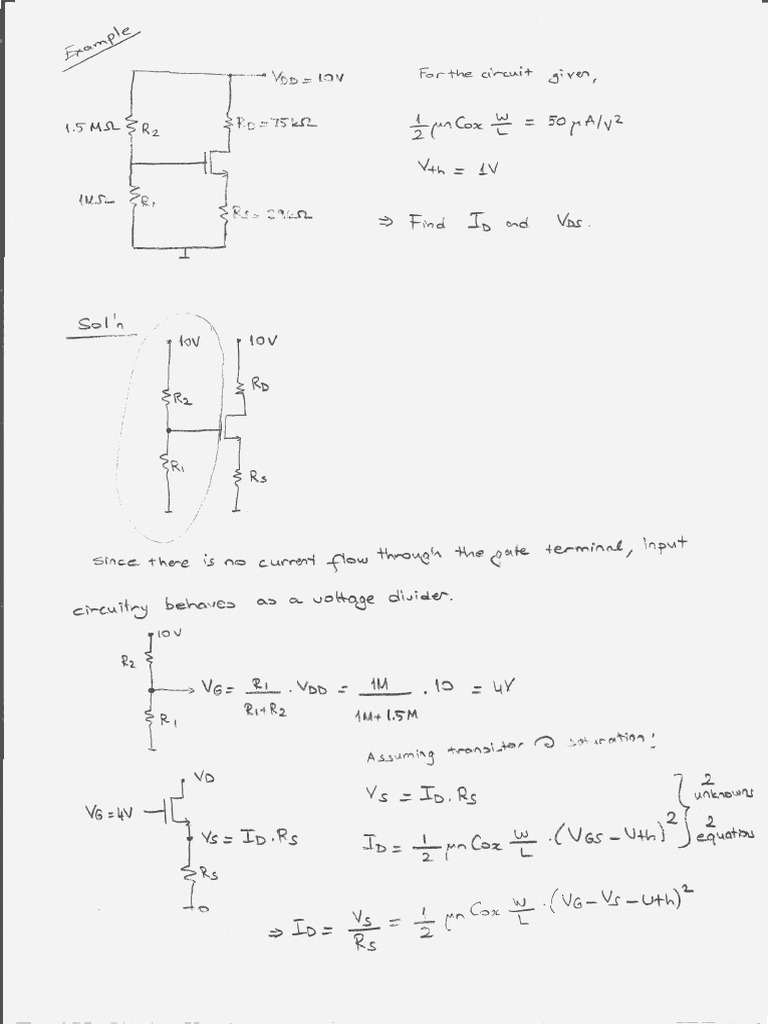 Example
VDD = 10V
For the circuit given,
1.5 MΩ R2
RD = 75kΩ
1/2 μn Cox W/L = 50 μA/V2
Vth = 1V
1MΩ R1
RS = 29kΩ
⇒ Find ID and VDS.
Sol'n
10V 10V
R2 RD
R1 RS
Since there is no current flow through the gate terminal, input
circuitry behaves as a voltage divider.
10V
R2
→ VG = R1/R1+R2 . VDD = 1M/1M+1.5M . 10 = 4V
R1
Assuming transistor @ saturation!
VD
VG=4V
VS = ID.RS
VS = ID.RS
RS
ID = 1/2 μn Cox W/L . (VGS - Vth)2
2 unknowns
2 equations
⇒ ID = VS/RS = 1/2 μn Cox W/L . (VG - VS - Vth)2